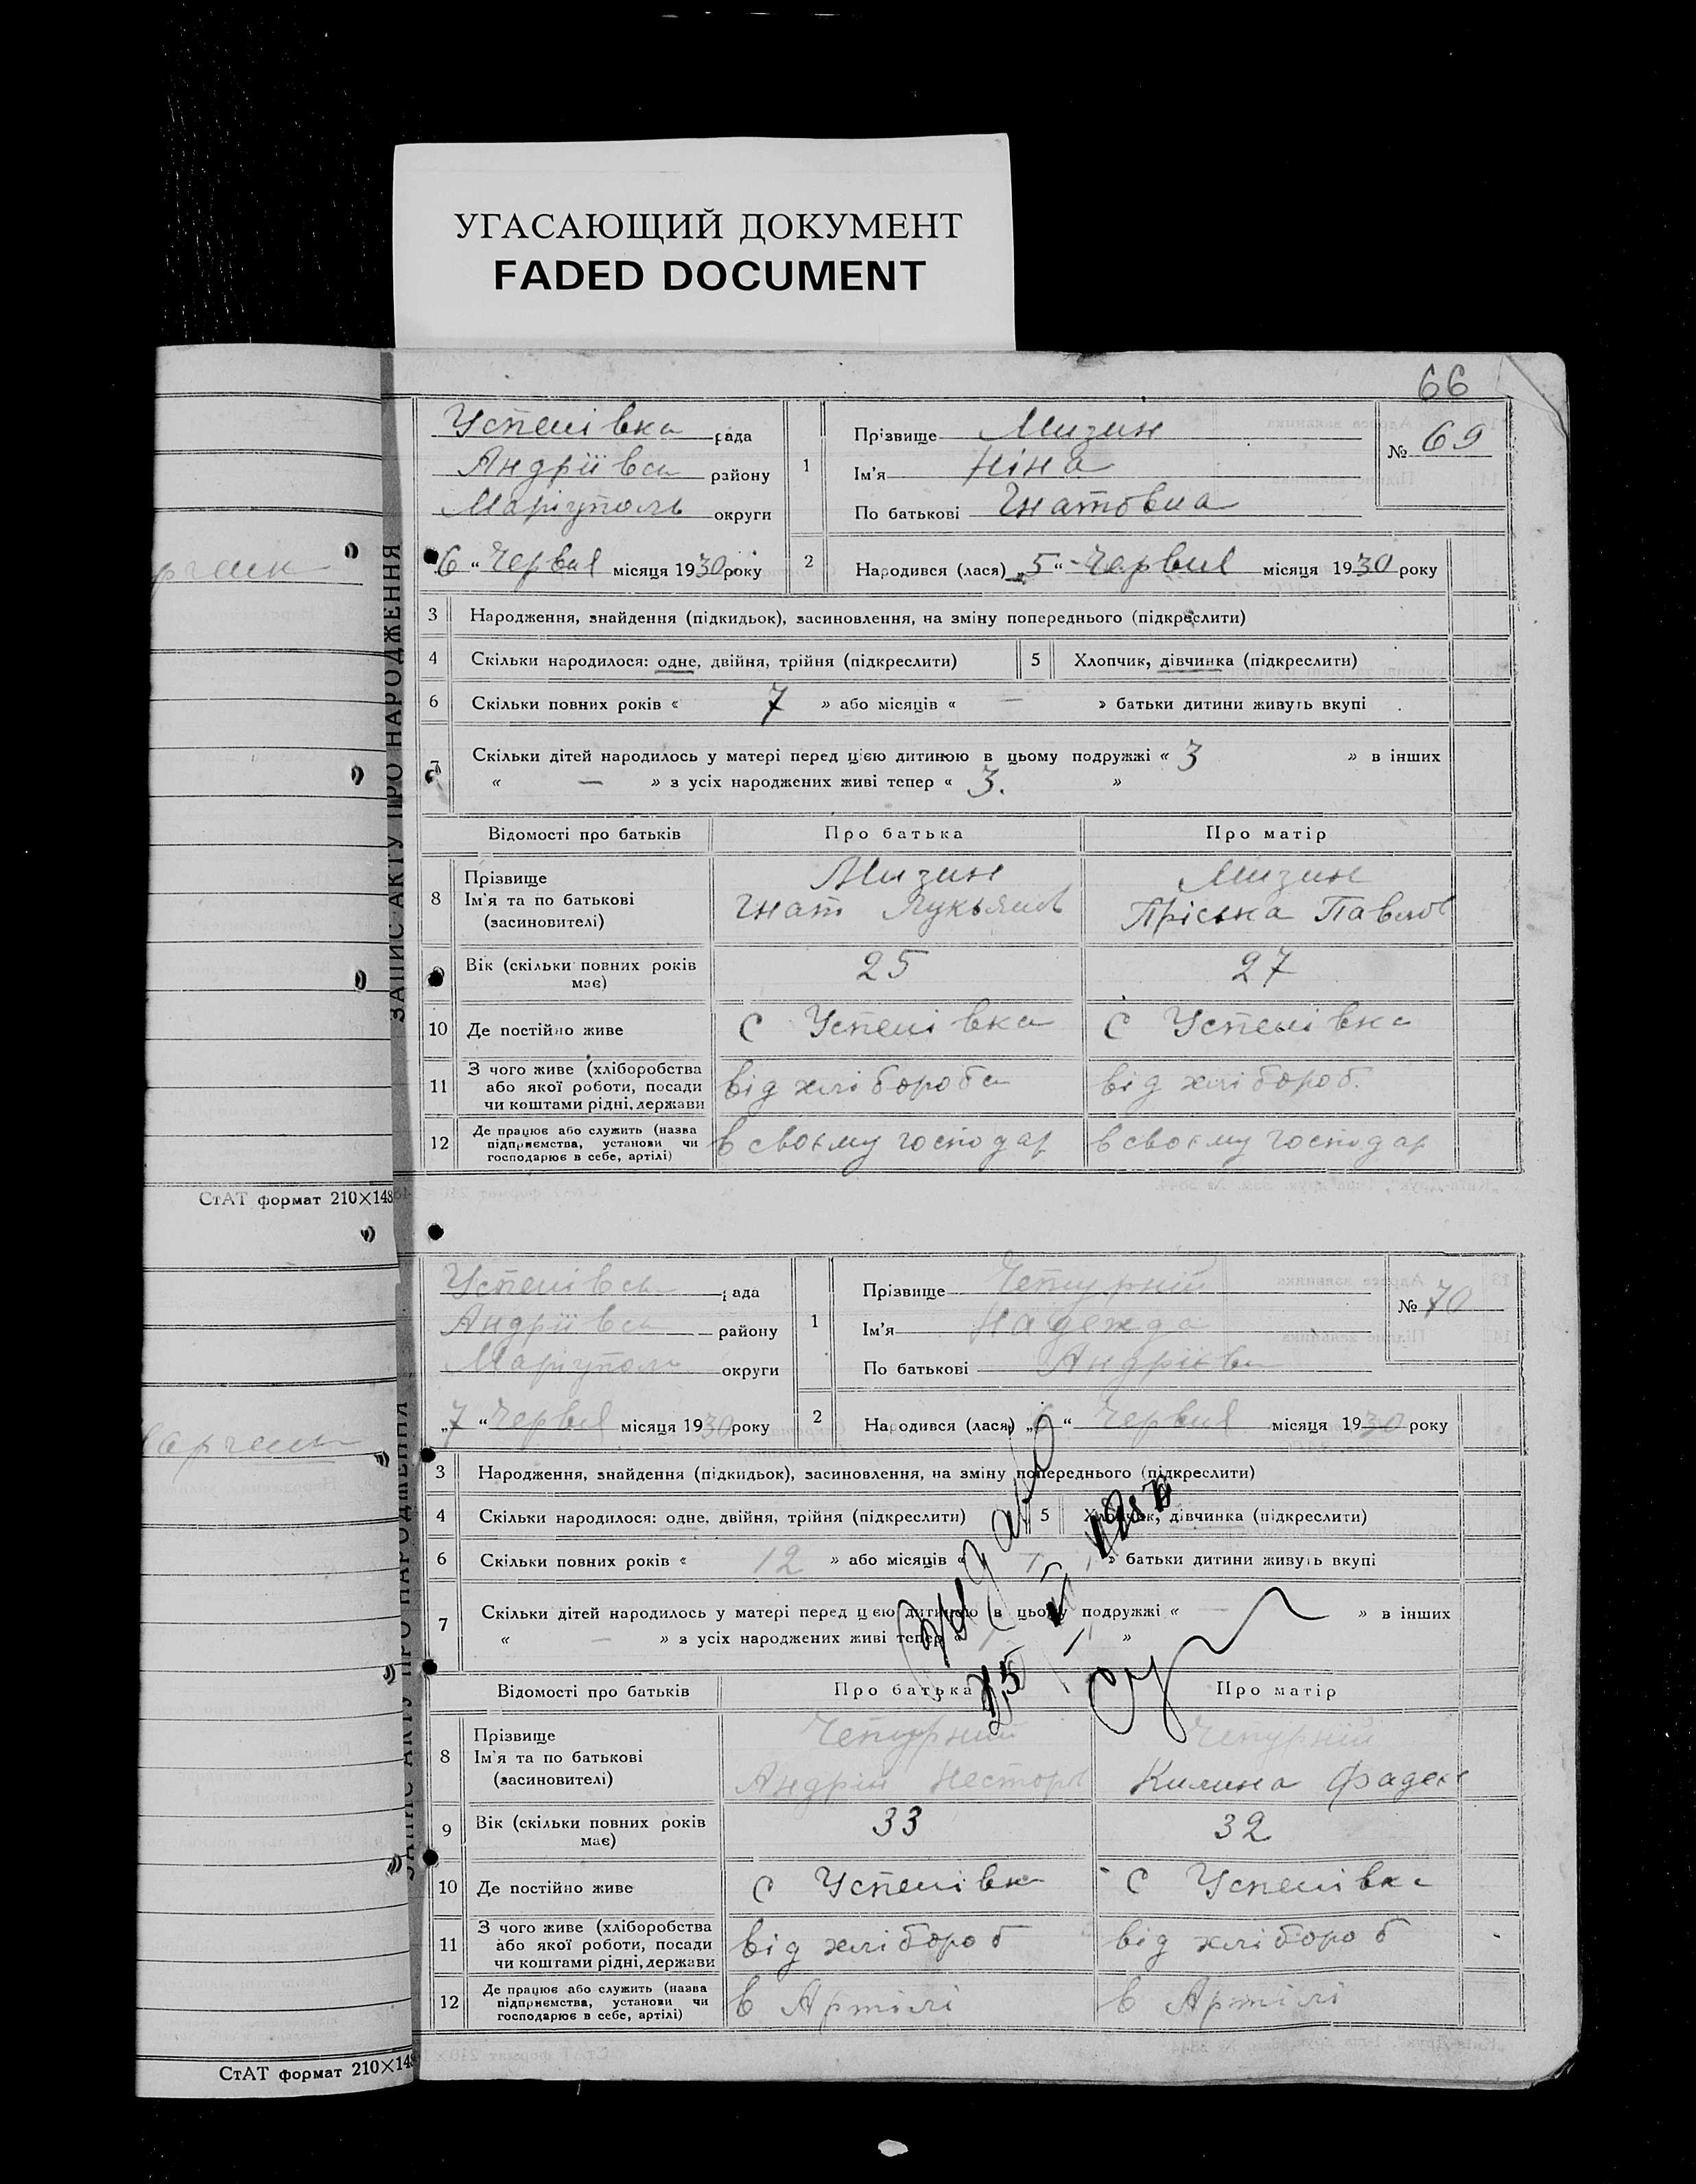 УГАСАЮЩИЙ ДОКУМЕНТ
FADED DOCUMENT
66
ЗАПИС АКТУ ПРО НАРОДЖЕННЯ
Успенівка рада
Андріївськ району
Маріуполь округи
6 “ Червня місяця 1930 року
1 Прізвище Мизин
Ім'я Ніна
По батькові Гнатовна
№ 69
2 Народився (лася) „5“ Червня місяця 1930 року
3 Народження, знайдення (підкидьок), засиновлення, на зміну попереднього (підкреслити)
4 Скільки народилося: одне, двійня, трійня (підкреслити) 5 Хлопчик, дівчинка (підкреслити)
6 Скільки повних років « 7 » або місяців « — » батьки дитини живуть вкупі
7 Скільки дітей народилось у матері перед цією дитиною в цьому подружжі « 3 » в інших
« — » з усіх народжених живі тепер « 3. »
Відомості про батьків Про батька Про матір
8 Прізвище Мизин Мизин
Ім'я та по батькові Гнат Лукьянов Пріська Павлов
(засиновителі)
9 Вік (скільки повних років 25 27
має)
10 Де постійно живе С Успенівка С Успенівка
11 З чого живе (хліборобства
або якої роботи, посади від хлібороба від хлібороб.
чи коштами рідні, держави
12 Де працює або служить (назва
підприємства, установи чи в своєму господар в своєму господар
господарює в себе, артілі)
СтАТ формат 210×148
Успенівськ рада
Андріївськ району
Маріуполь округи
„7“ Червня місяця 1930 року
1 Прізвище Чепурній
Ім'я Надежда
По батькові Андрієвн
№ 70
2 Народився (лася) „6“ Червня місяця 1930 року
3 Народження, знайдення (підкидьок), засиновлення, на зміну попереднього (підкреслити)
4 Скільки народилося: одне, двійня, трійня (підкреслити) 5 Хлопчик, дівчинка (підкреслити)
6 Скільки повних років « 12 » або місяців « » батьки дитини живуть вкупі
7 Скільки дітей народилось у матері перед цією дитиною в цьому подружжі « — » в інших
« — » з усіх народжених живі тепер « »
Відомості про батьків Про батька Про матір
8 Прізвище Чепурний Чепурній
Ім'я та по батькові Андрій Несторов Килина Фадеев
(засиновителі)
9 Вік (скільки повних років 33 32
має)
10 Де постійно живе С Успенівка С Успенівка
11 З чого живе (хліборобства
або якої роботи, посади від хлібороб від хлібороб
чи коштами рідні, держави
12 Де працює або служить (назва
підприємства, установи чи в Артілі в Артілі
господарює в себе, артілі)
СтАТ формат 210×148
ЗАПИС АКТУ ПРО НАРОДЖЕННЯ